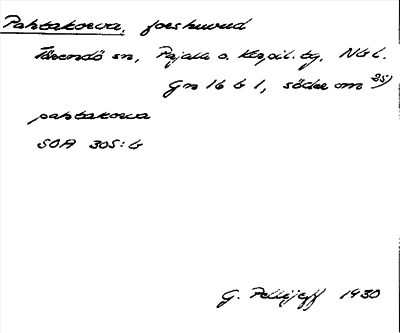 Pahtakorva, forshuvud
Tärendö sn, Pajala o. Korpil. tg, Nbl.
Gn 16 b 1, söder om 25)
pahtakorva
SOA 305:6
G. Pellijeff 1930